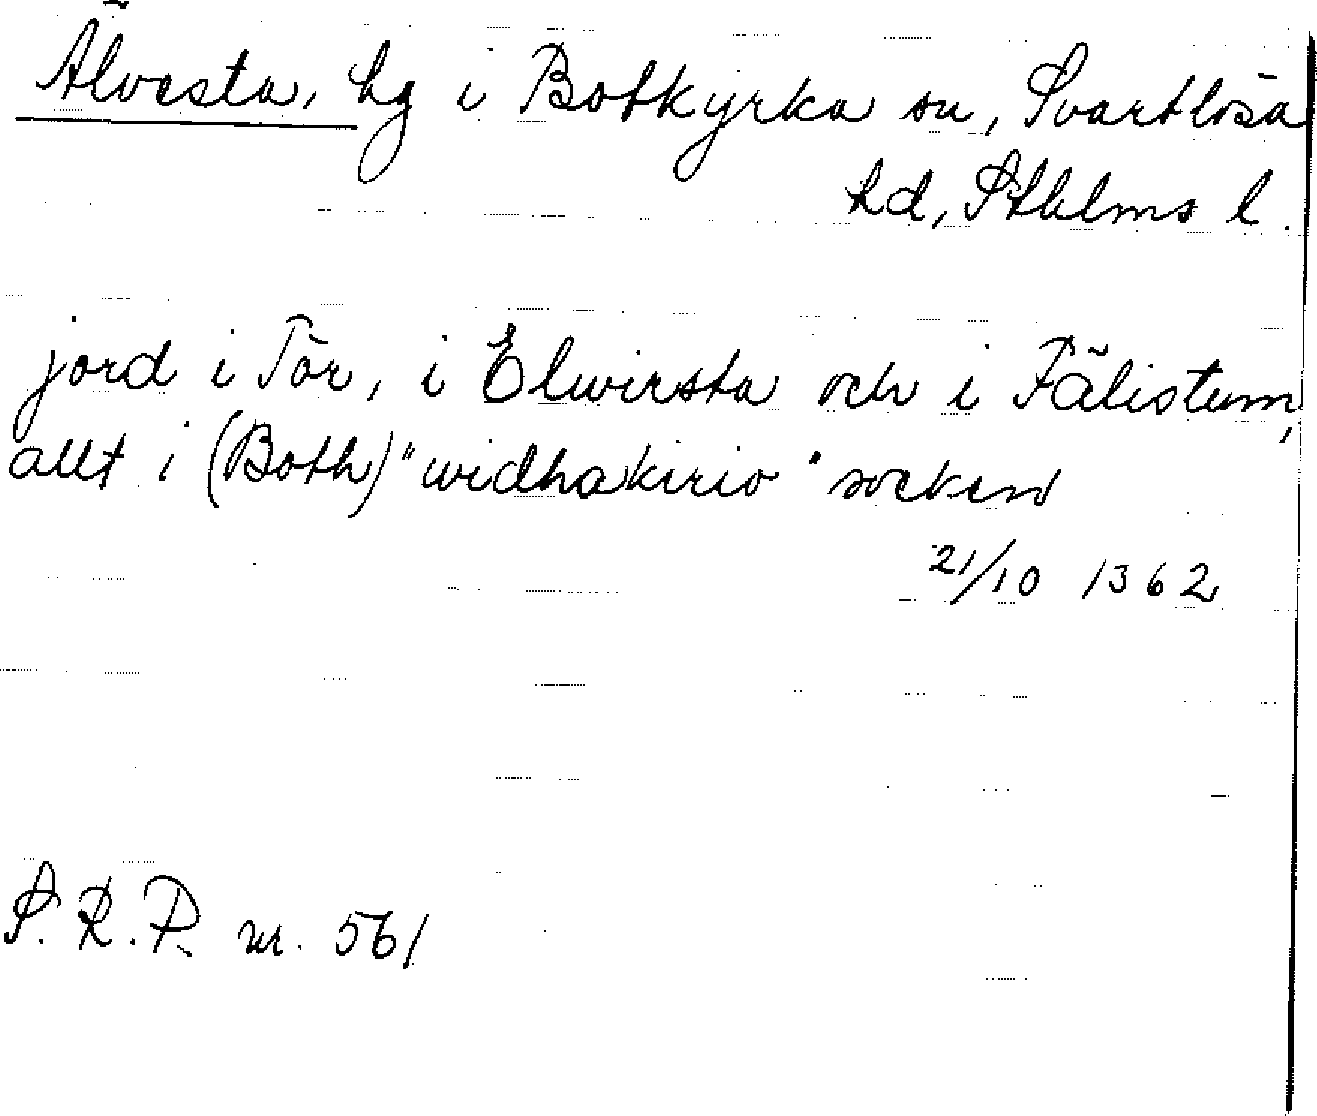 Älvesta, hg i Botkyrka sn, Svartlösa
hd, Sthlms l.
jord i Tör, i Elwirsta och i Fälistum,
allt i (Both) "widhakirio" socken
21/10 1362
S.R.P. nr. 561